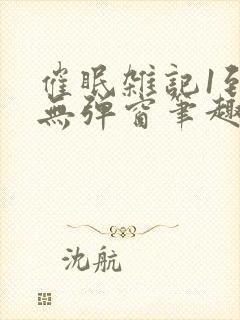 催眠雑記1到
無弹窗筆趣
沈航